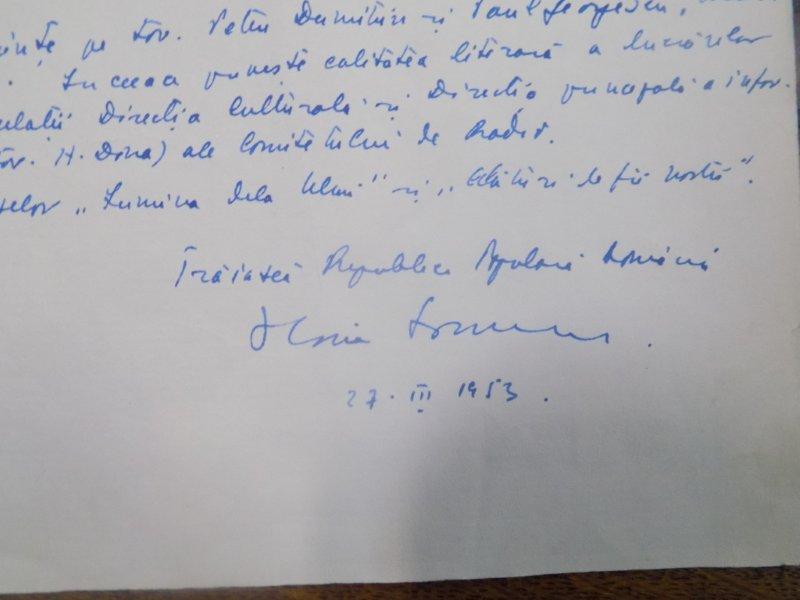 pe tov. Petru Dumitriu și Paul Georgescu,
. In ceeace privește calitatea literară a lucrărilor
Direcția Culturală și Direcția principală a infor-
tov. H. Dona) ale Comitetului de Radio.
"Lumina dela" și "de fii noștri".
Trăiască Republica Populară Română
Horia
27. III 1953.